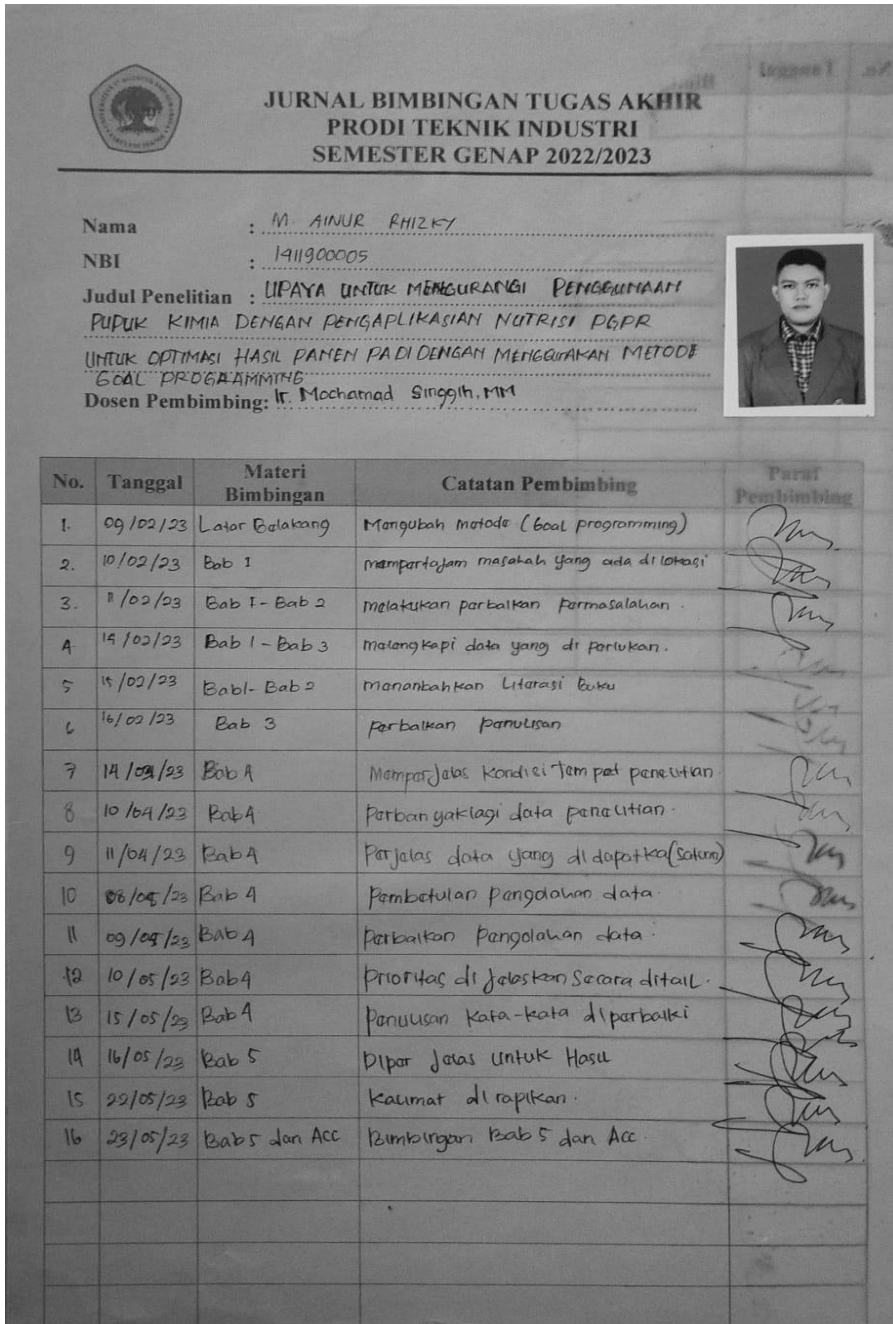 JURNAL BIMBINGAN TUGAS AKHIR
PRODI TEKNIK INDUSTRI
SEMESTER GENAP 2022/2023
Nama : M. AINUR RHIZKY
NBI : 1411900005
Judul Penelitian : UPAYA UNTUK MENGURANGI PENGGUNAAN
PUPUK KIMIA DENGAN PENGAPLIKASIAN NUTRISI PGPR
UNTUK OPTIMASI HASIL PANEN PADI DENGAN MENGGUNAKAN METODE
GOAL PROGRAMMING
Dosen Pembimbing: Ir. Mochamad Singgih, MM
No. Tanggal Materi Bimbingan Catatan Pembimbing Paraf Pembimbing
1. 09/02/23 Latar Belakang Mengubah metode (Goal programming)
2. 10/02/23 Bab 1 mempertajam masalah yang ada di lokasi
3. 11/02/23 Bab 1 - Bab 2 melakukan perbaikan permasalahan.
4 14/02/23 Bab 1 - Bab 3 melengkapi data yang di perlukan.
5 15/02/23 Bab 1 - Bab 2 menanbahkan Literasi buku
6 16/02/23 Bab 3 perbaikan penulisan
7 Bab 4 Memperjelas kondisi tempat penelitian.
8 10/04/23 Bab 4 Perbanyak lagi data penelitian.
9 11/04/23 Bab 4 Perjelas data yang di dapatka
10 08/05/23 Bab 4 Pembetulan pengolahan data.
11 09/05/23 Bab 4 Perbaikan Pengolahan data.
12 10/05/23 Bab 4 Prioritas di jelaskan Secara ditail.
13 15/05/23 Bab 4 Penulisan kata-kata diperbaiki
14 16/05/23 Bab 5 Diper jelas untuk Hasil
15 22/05/23 Bab 5 Kalimat di rapikan.
16 23/05/23 Bab 5 dan Acc Bimbingan Bab 5 dan Acc.